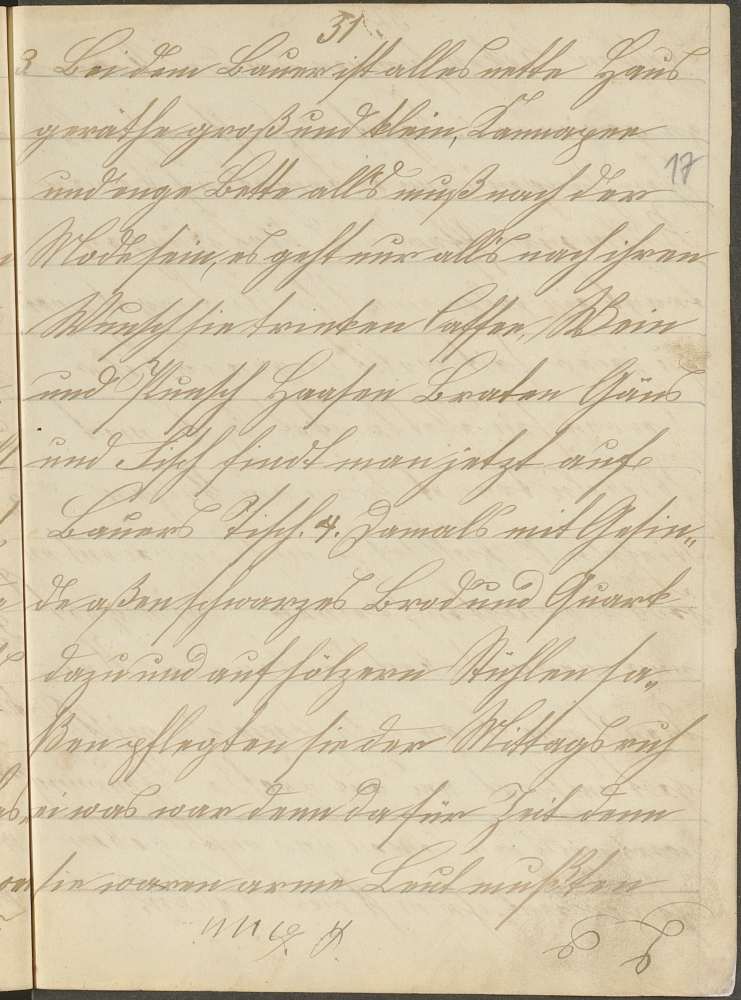 31
3 Bei dem Bauer ist alles nette Haus
geräthe groß und klein, Kannapee
17
und enge Bette all's muß nach der
Mode sein, es geht nur all's nach ihren
Wunsch sie trinken Caffee, Wein
und Punsch Haasen Braten Gäns
und Fisch findt man jetzt auf
Bauers Tisch. 4. Damals mit Gesin„
de aßen schwarzes Brod und Quark
dazu und auf hölzern Stühlen sa„
ßen pflegten sie der Mittagsruh
ei was war denn da für Zeit denn
sie waren arme Leut mußten